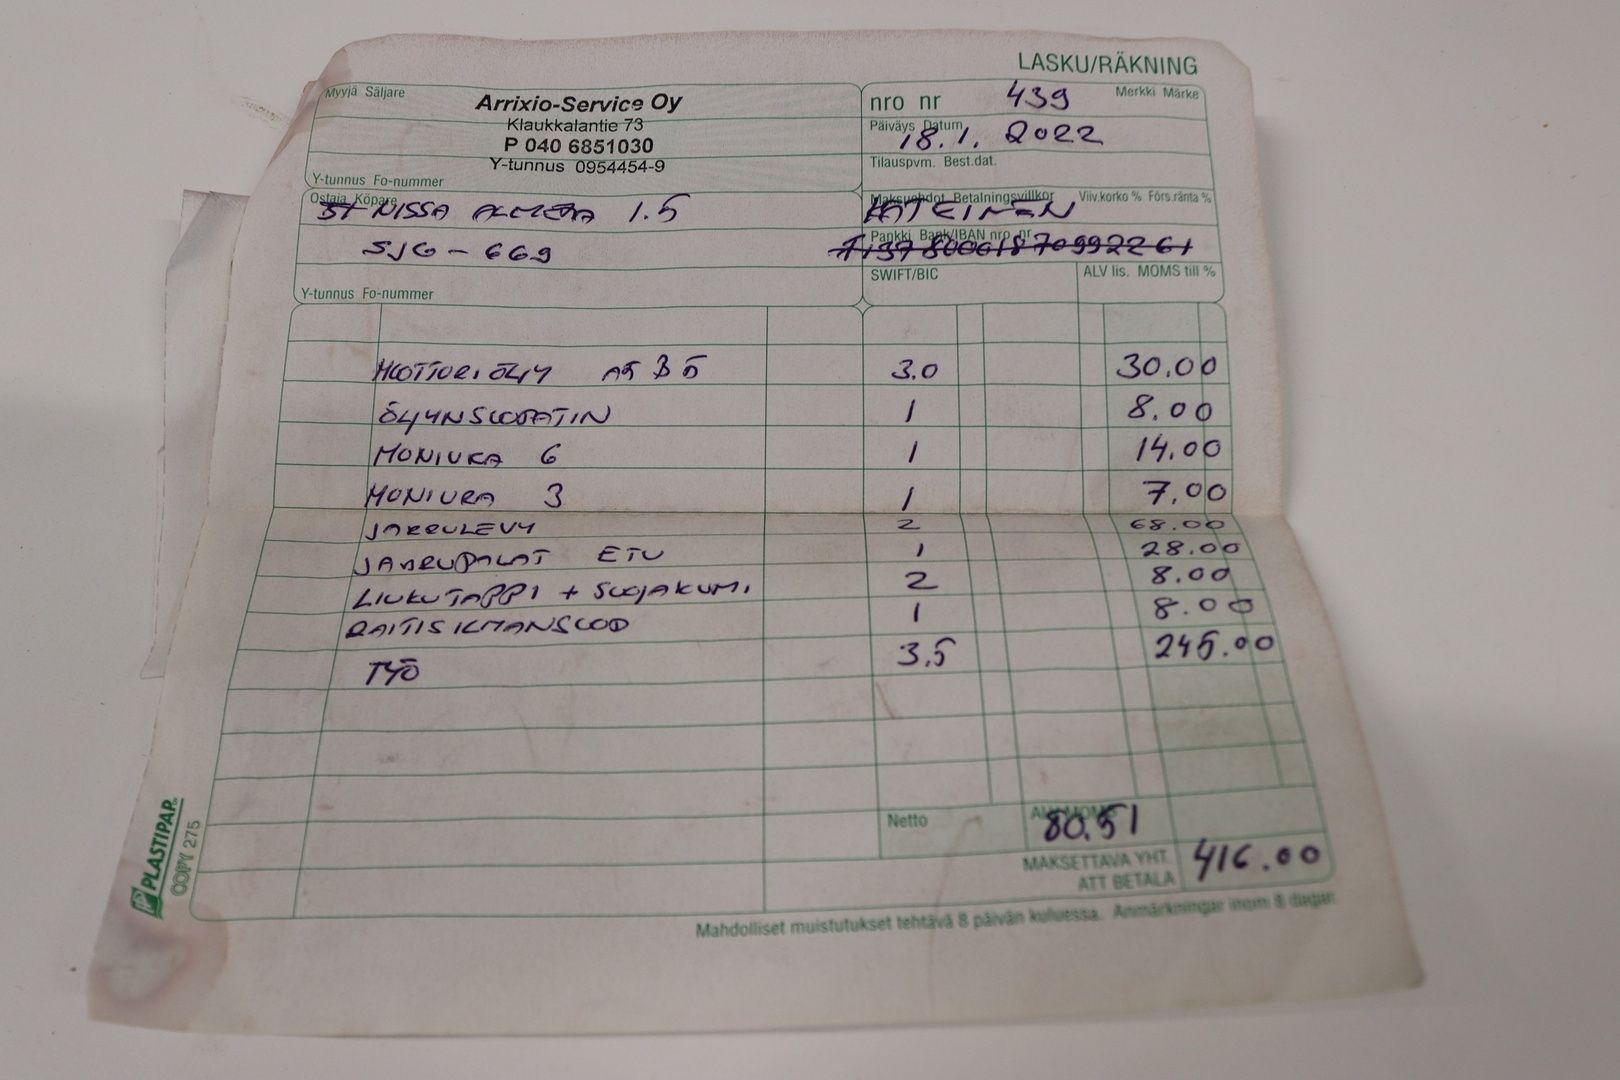 LASKU/RÄKNING
Myyjä Säljare
Arrixio-Service Oy
Klaukkalantie 73
P 040 6851030
Y-tunnus 0954454-9
Y-tunnus Fo-nummer
nro nr 439 Merkki Märke
Päiväys Datum
18.1. 2022
Tilauspvm. Best.dat.
Ostaja Köpare
NISSA ALMERA 1.5
SJG-669
Y-tunnus Fo-nummer
Maksuehdot Betalningsvillkor Viiv.korko % Förs.ränta %
KÄTEINEN
Pankki Bank/IBAN nro nr
SWIFT/BIC
ALV lis. MOMS till %
MOOTTORIÖLJY A5 B5 3.0 30.00
ÖLJYNSUODATIN 1 8.00
MONIURA 6 1 14.00
MONIURA 3 1 7.00
JARRULEVY 2 68.00
JARRUPALAT ETU 1 28.00
LIUKUTAPPI + SUOJAKUMI 2 8.00
RAITISILMANSUOD 1 8.00
TYÖ 3,5 245.00
Netto
ALV MOMS
80.51
MAKSETTAVA YHT.
ATT BETALA
416.00
Mahdolliset muistutukset tehtävä 8 päivän kuluessa. Anmärkningar inom 8 dagar.
PLASTIPAP
COPY 275